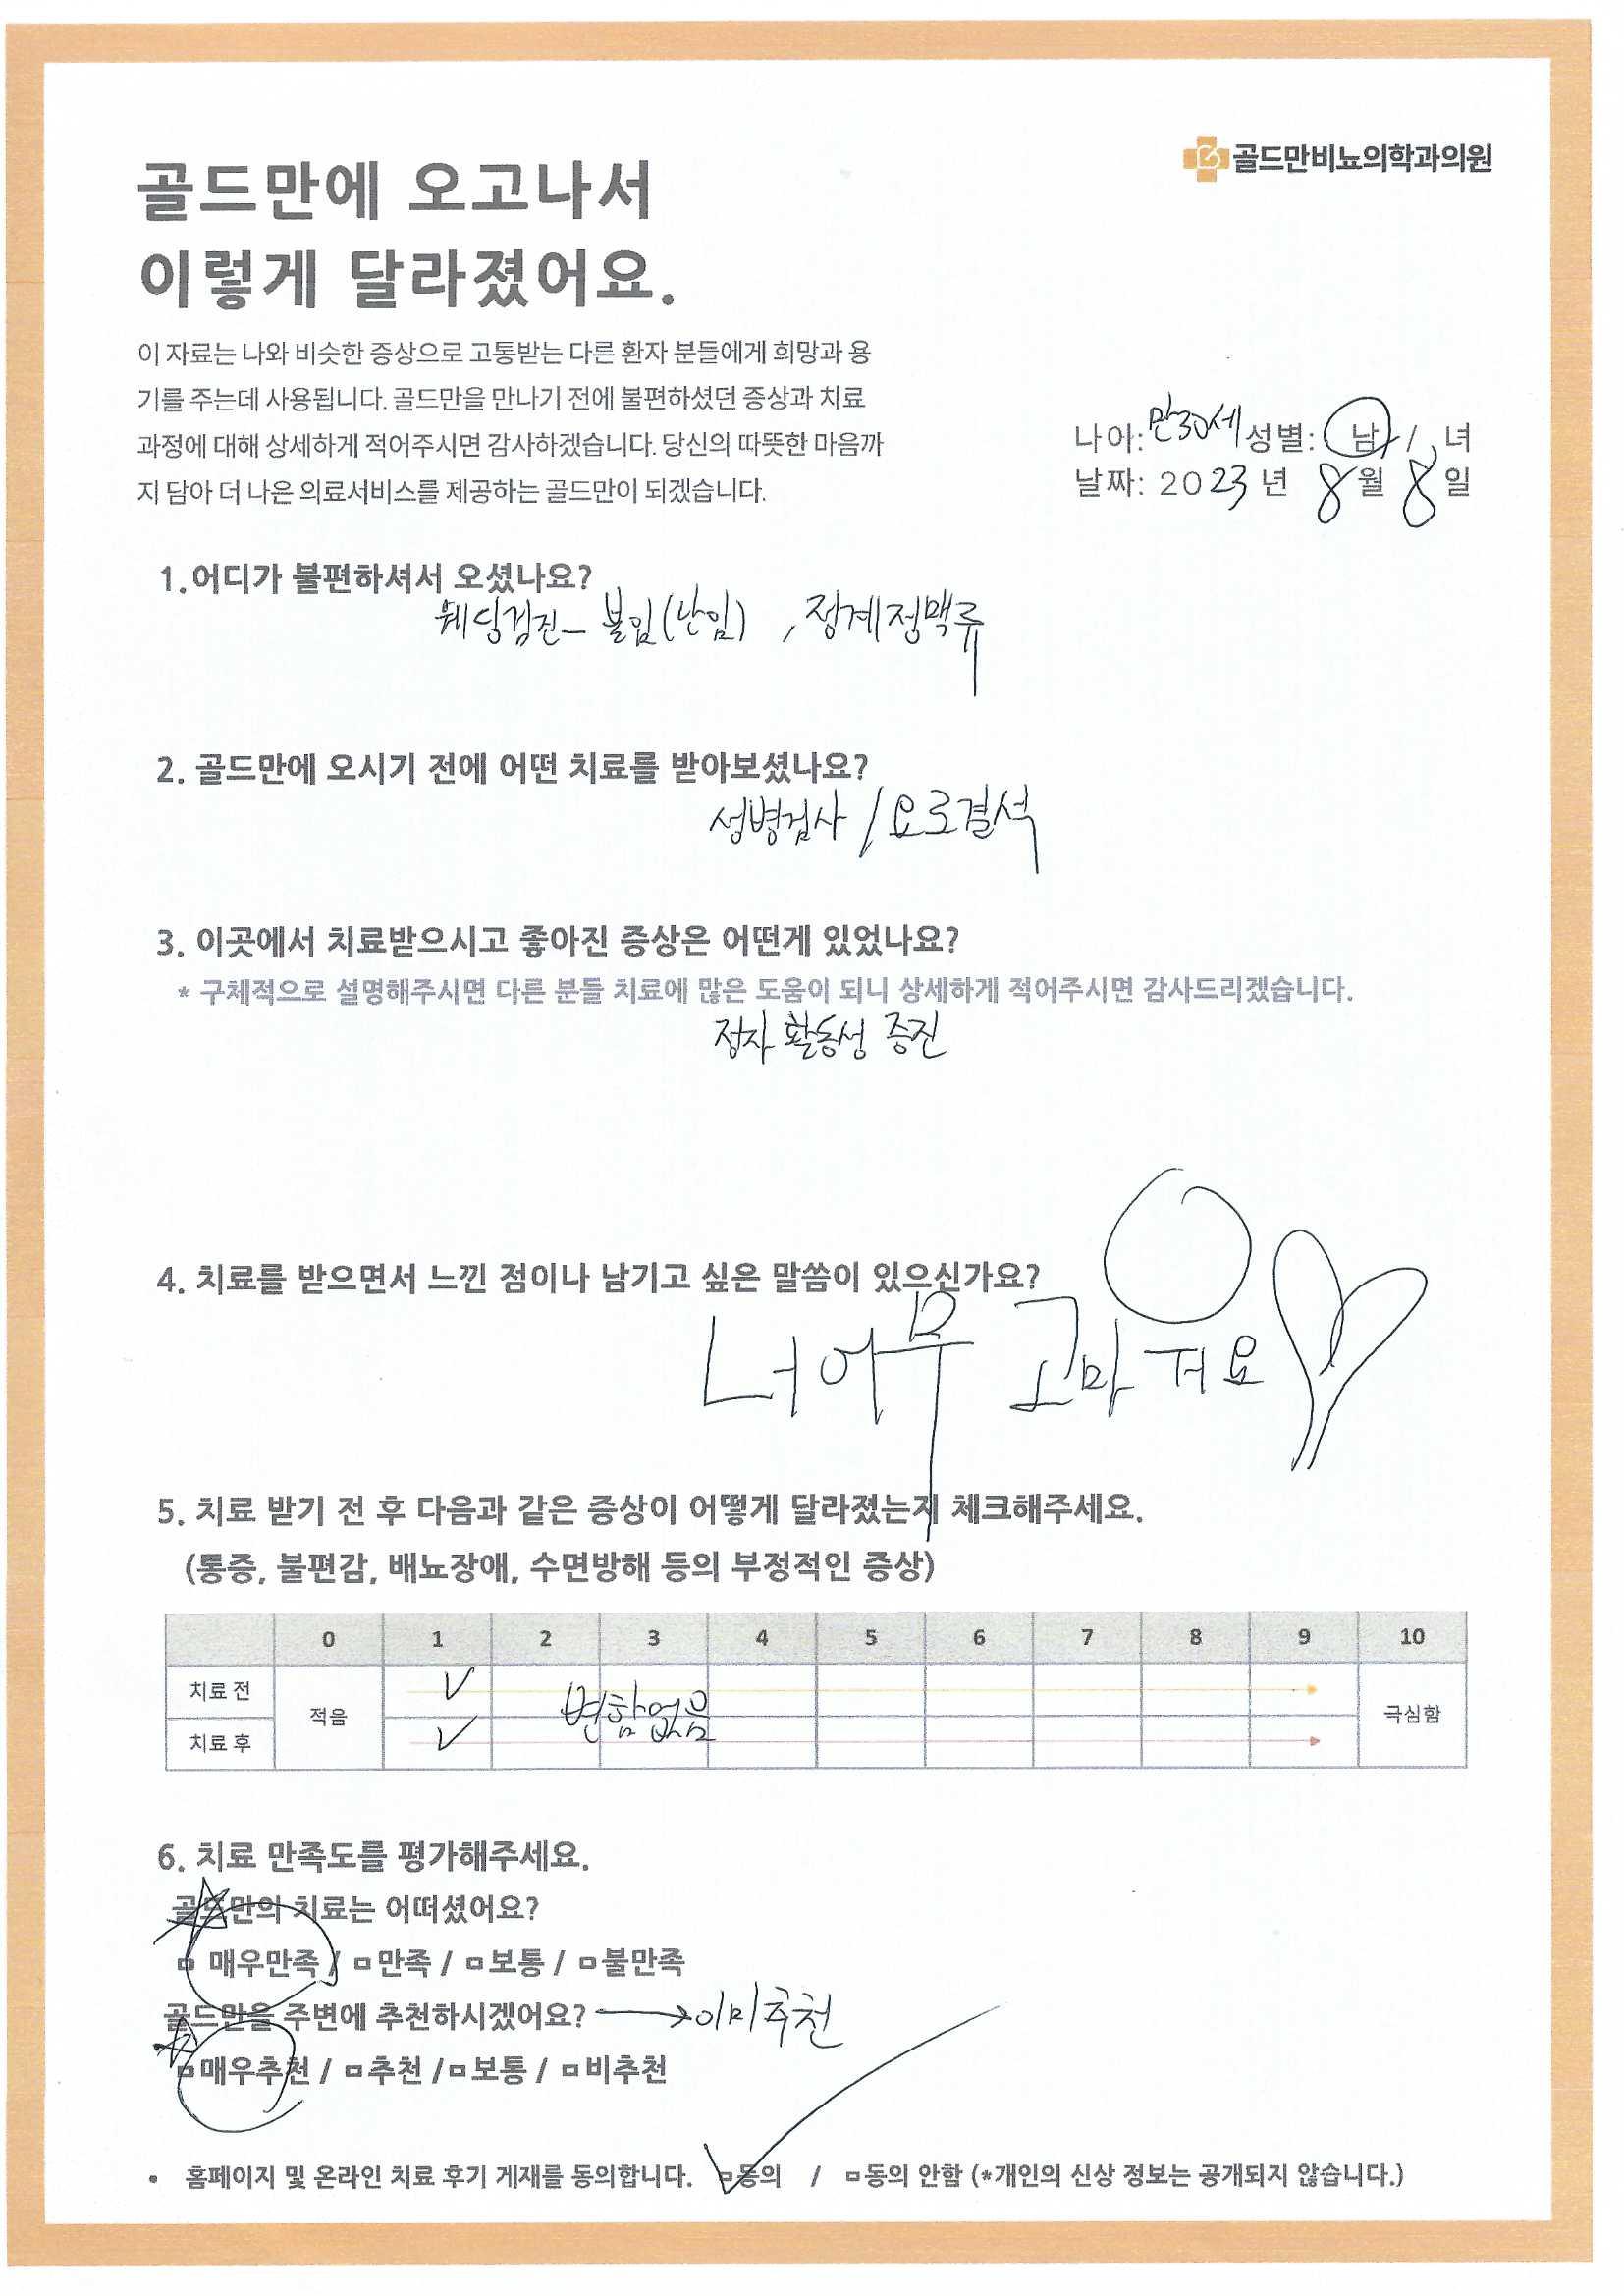 골드만비뇨의학과의원
골드만에 오고나서
이렇게 달라졌어요.
이 자료는 나와 비슷한 증상으로 고통받는 다른 환자 분들에게 희망과 용
기를 주는데 사용됩니다. 골드만을 만나기 전에 불편하셨던 증상과 치료
과정에 대해 상세하게 적어주시면 감사하겠습니다. 당신의 따뜻한 마음까
지 담아 더 나은 의료서비스를 제공하는 골드만이 되겠습니다.
나이: 만30세 성별: 남 / 녀
날짜: 2023 년 8 월 8 일
1.어디가 불편하셔서 오셨나요?
웨딩검진_ 불임(난임) , 정계정맥류
2. 골드만에 오시기 전에 어떤 치료를 받아보셨나요?
성병검사 / 요로결석
3. 이곳에서 치료받으시고 좋아진 증상은 어떤게 있었나요?
* 구체적으로 설명해주시면 다른 분들 치료에 많은 도움이 되니 상세하게 적어주시면 감사드리겠습니다.
정자 활동성 증진
4. 치료를 받으면서 느낀 점이나 남기고 싶은 말씀이 있으신가요?
너어무 고마워요
5. 치료 받기 전 후 다음과 같은 증상이 어떻게 달라졌는지 체크해주세요.
(통증, 불편감, 배뇨장애, 수면방해 등의 부정적인 증상)
0 1 2 3 4 5 6 7 8 9 10
치료 전 ✓
적음 변함없음 극심함
치료 후 ✓
6. 치료 만족도를 평가해주세요.
골드만의 치료는 어떠셨어요?
□ 매우만족 / □ 만족 / □ 보통 / □ 불만족
골드만을 주변에 추천하시겠어요? → 이미 추천
□ 매우추천 / □ 추천 / □ 보통 / □ 비추천
• 홈페이지 및 온라인 치료 후기 게재를 동의합니다. □동의 / □동의 안함 (*개인의 신상 정보는 공개되지 않습니다.)